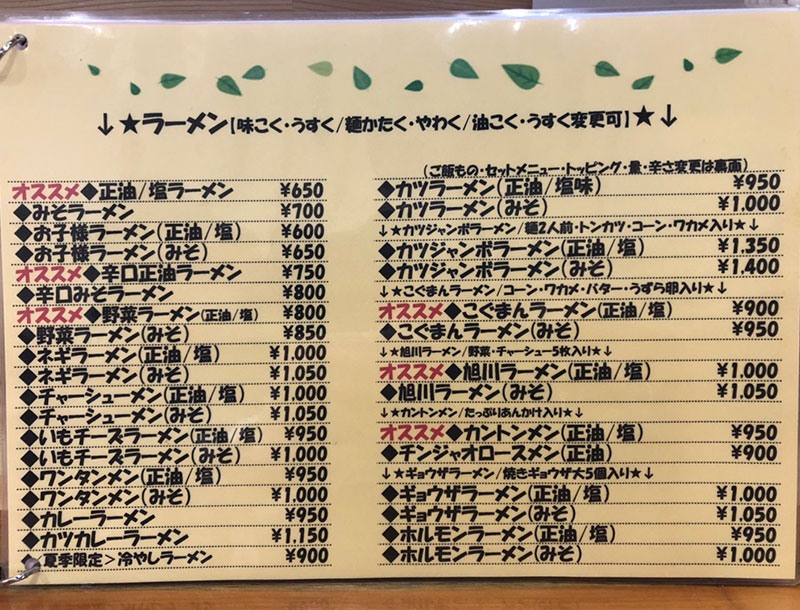 ↓★ラーメン【味こく・うすく/麺かたく・やわく/油こく・うすく変更可】★↓
オススメ◆正油/塩ラーメン ¥650
◆みそラーメン ¥700
◆お子様ラーメン(正油/塩) ¥600
◆お子様ラーメン(みそ) ¥650
オススメ◆辛口正油ラーメン ¥750
◆辛口みそラーメン ¥800
オススメ◆野菜ラーメン(正油/塩) ¥800
◆野菜ラーメン(みそ) ¥850
◆ネギラーメン(正油/塩) ¥1,000
◆ネギラーメン(みそ) ¥1,050
◆チャーシューメン(正油/塩) ¥1,000
◆チャーシューメン(みそ) ¥1,050
◆いもチーズラーメン(正油/塩) ¥950
◆いもチーズラーメン(みそ) ¥1,000
◆ワンタンメン(正油/塩) ¥950
◆ワンタンメン(みそ) ¥1,000
◆カレーラーメン ¥950
◆カツカレーラーメン ¥1,150
夏季限定>冷やしラーメン ¥900
(ご飯もの・セットメニュー・トッピング・量・辛さ変更は裏面)
◆カツラーメン(正油/塩味) ¥950
◆カツラーメン(みそ) ¥1,000
↓★カツジャンボラーメン/麺2人前・トンカツ・コーン・ワカメ入り★↓
◆カツジャンボラーメン(正油/塩) ¥1,350
◆カツジャンボラーメン(みそ) ¥1,400
↓★こぐまんラーメン/コーン・ワカメ・バター・うずら卵入り★↓
オススメ◆こぐまんラーメン(正油/塩) ¥900
◆こぐまんラーメン(みそ) ¥950
↓★旭川ラーメン/野菜・チャーシュー5枚入り★↓
オススメ◆旭川ラーメン(正油/塩) ¥1,000
◆旭川ラーメン(みそ) ¥1,050
↓★カントンメン/たっぷりあんかけ入り★↓
オススメ◆カントンメン(正油/塩) ¥950
◆チンジャオロースメン(正油) ¥900
↓★ギョウザラーメン/焼きギョウザ大5個入り★↓
◆ギョウザラーメン(正油/塩) ¥1,000
◆ギョウザラーメン(みそ) ¥1,050
◆ホルモンラーメン(正油/塩) ¥950
◆ホルモンラーメン(みそ) ¥1,000